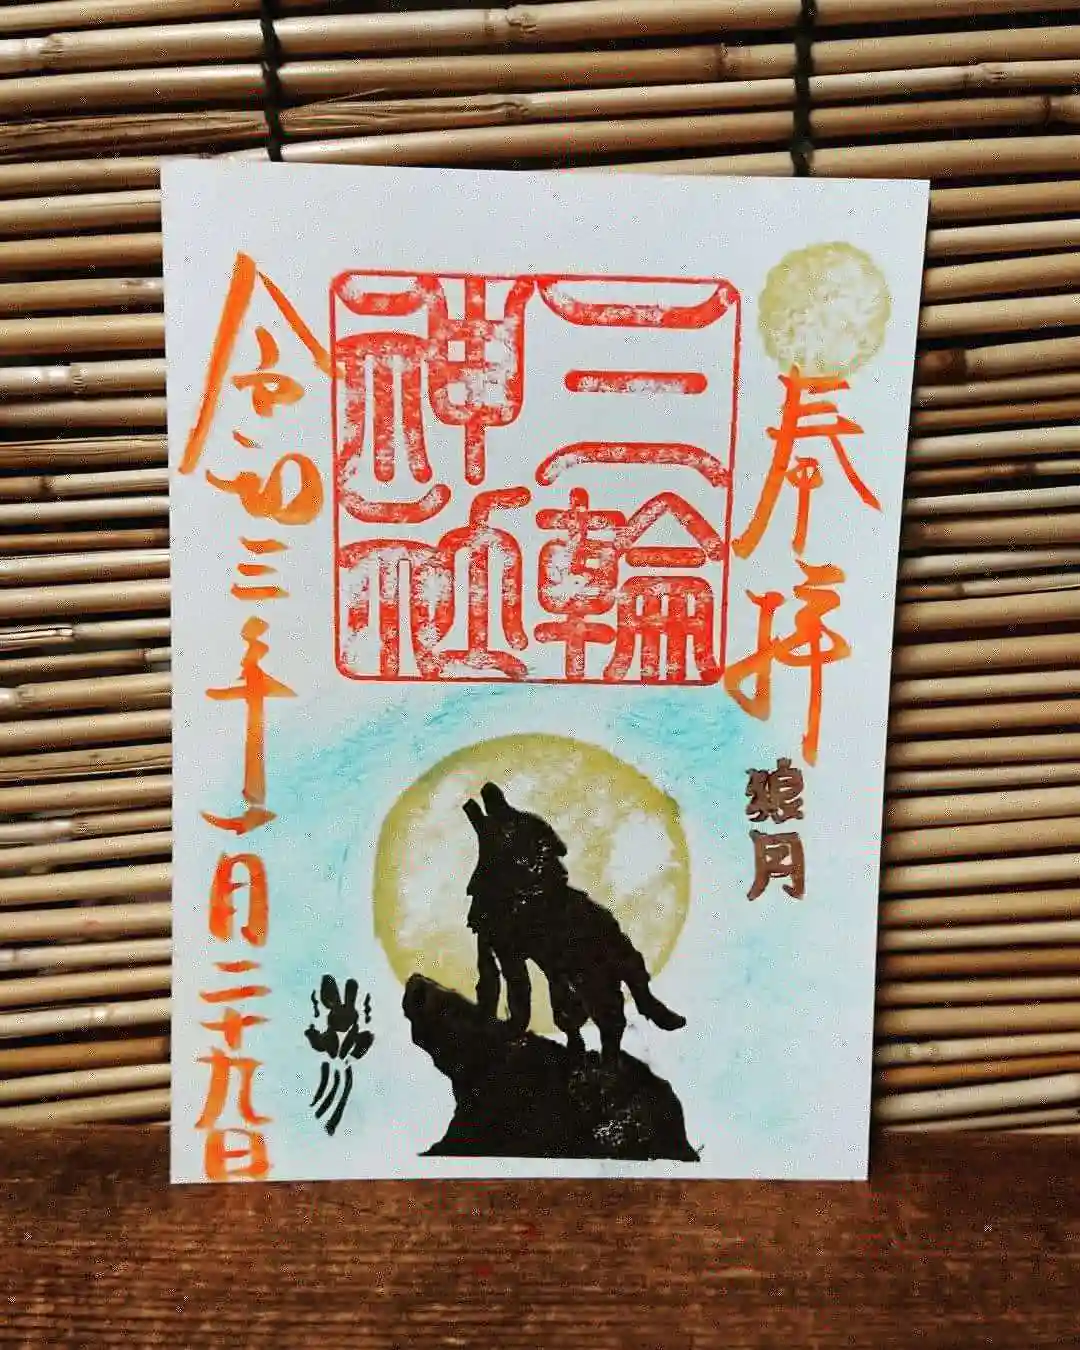 奉拝
狼月
三輪
神社
令和三年一月二十九日